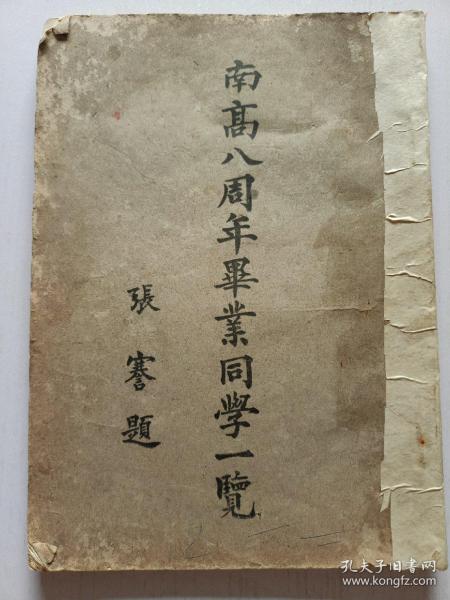 南高八周年畢業同學一覽
張謇題
孔夫子旧书网
www.kongfz.com